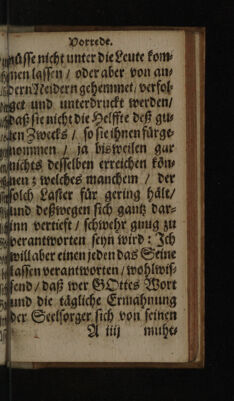 Vorrede.
müsse nicht unter die Leute kom-
men lassen / oder aber von an-
dern Neidern gehemmet / verfol-
get und unterdruckt werden /
daß sie nicht die Helffte deß gu-
ten Zwecks / so sie ihnen fürge-
nommen / ja bisweilen gar
nichts desselben erreichen kön-
nen ; welches manchem / der
solch Laster für gering hält /
und deßwegen sich gantz dar-
inn vertieft / schwehr gnug zu
verantworten seyn wird : Ich
will aber einen jeden das Seine
lassen verantworten / wohlwis-
send / daß wer GOttes Wort
und die tägliche Ermahnung
der Seelsorger sich von seinen
A iiij muht-